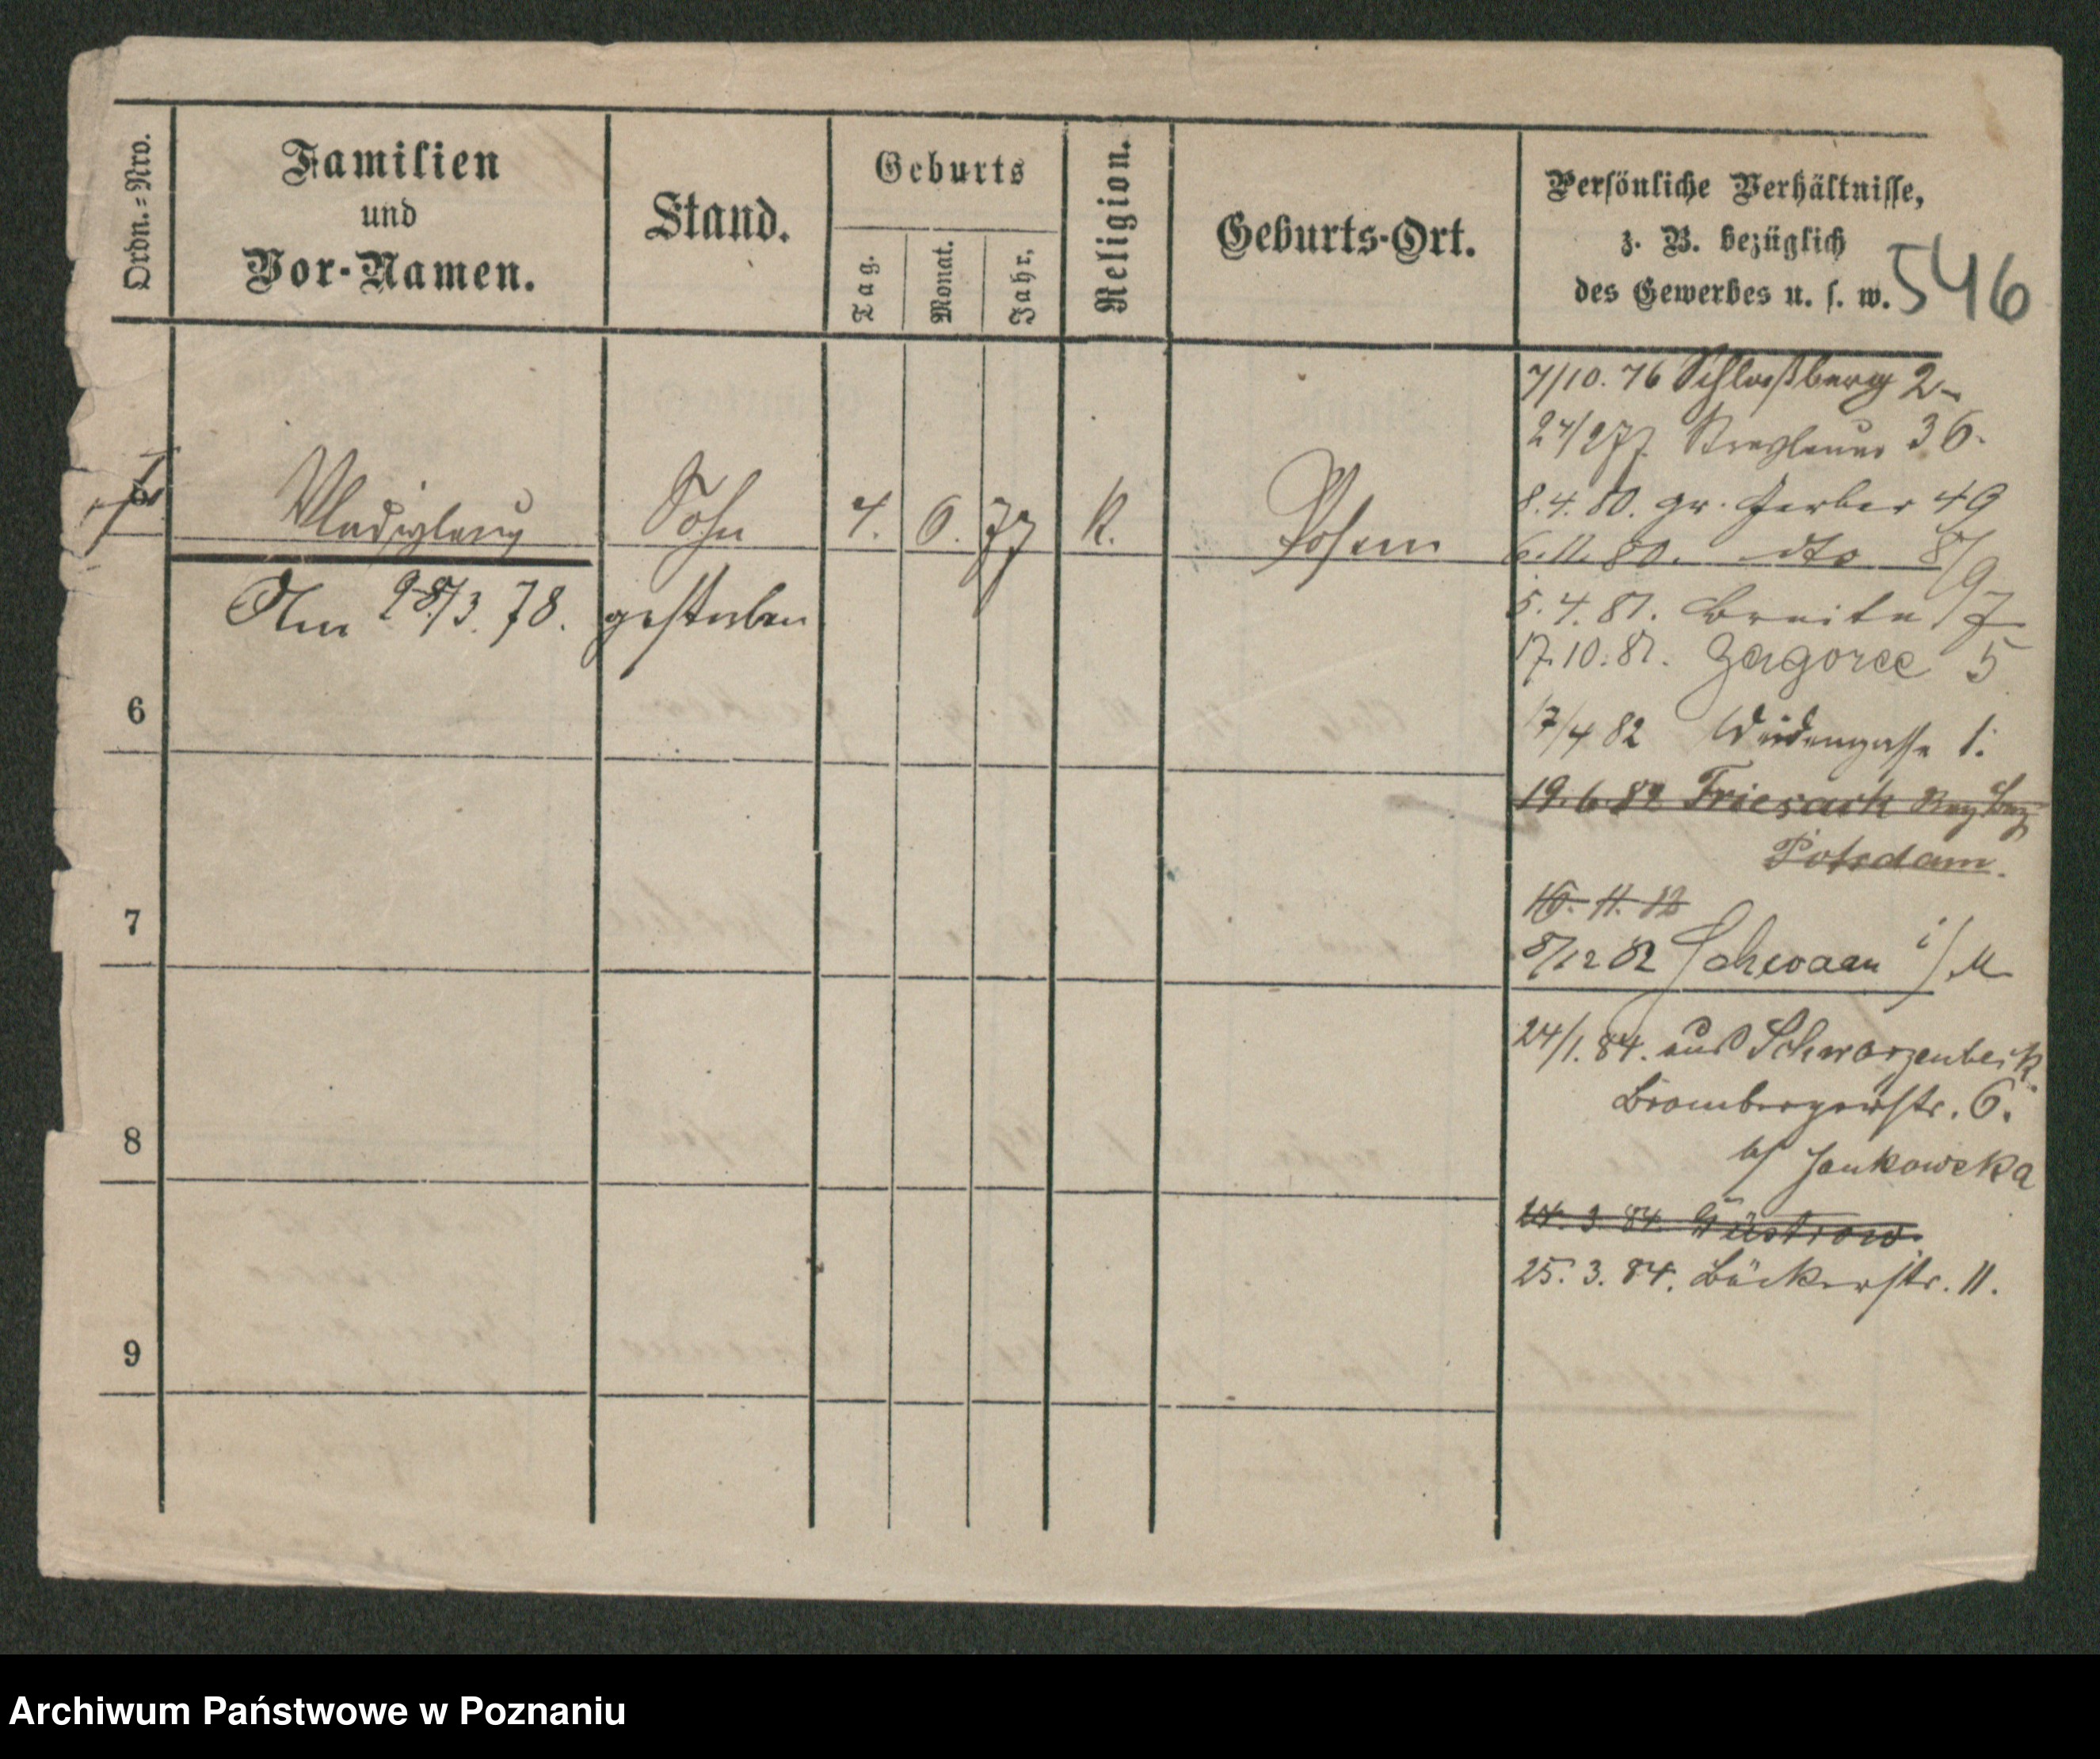 Ordn.=Nro.
Familien
und
Vor-Namen.
Stand.
Geburts
Tag.
Monat.
Jahr.
Religion.
Geburts-Ort.
Persönliche Verhältnisse,
z. B. bezüglich
des Gewerbes u. s. w.
546
Sohn 4. 6. 77 K. Posen
Am 28/3. 78. gestorben
6
7
8
9
7/10. 76 Schloßberg 2
36.
8.4.80. gr. Gerber 49
6.11.80. dto 8/9
5.4.81. Breite
17.10.81. Zagorce 5
17/4 82 Weidengasse 1.
19.6.82 Friesack Reg Bez
Potsdam.
16. 11. 82
8/12 82 Schwaan i/M
24/1. 84. aus Schwarzenbeck
Brombergerstr. 6.
b/ Jankowska
24. 3. 84. Güstrow.
25. 3. 84. Bäckerstr. 11.
Archiwum Państwowe w Poznaniu